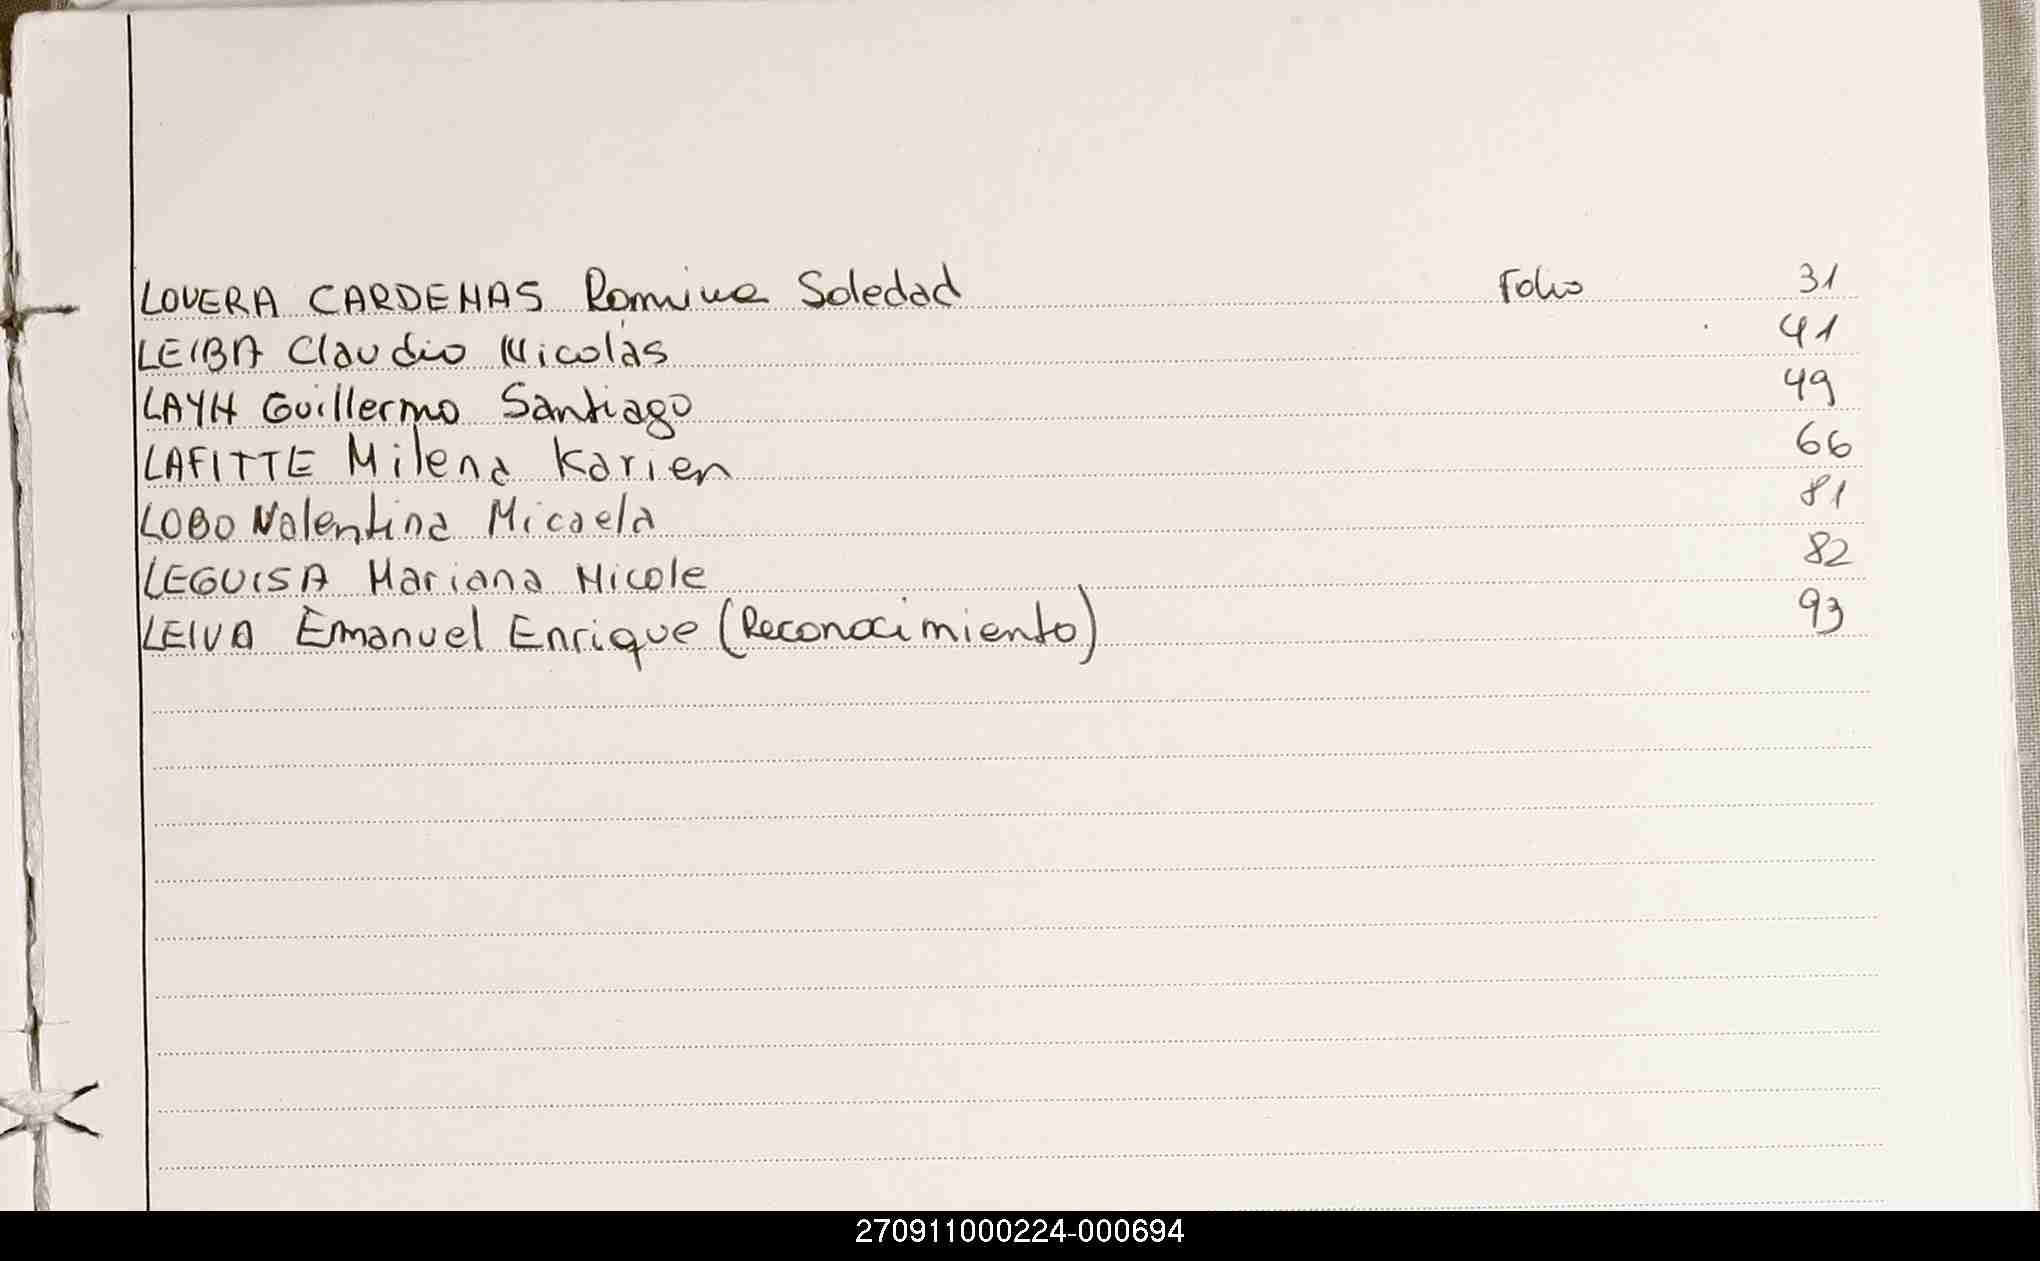 LOVERA CARDENAS Romina Soledad Folio 31
LEIBA Claudio Nicolás 41
LAYH Guillermo Santiago 49
LAFITTE Milena Karien 66
LOBO Valentina Micaela 81
LEGUISA Mariana Nicole 82
LEIVA Emanuel Enrique (Reconocimiento) 93
270911000224-000694